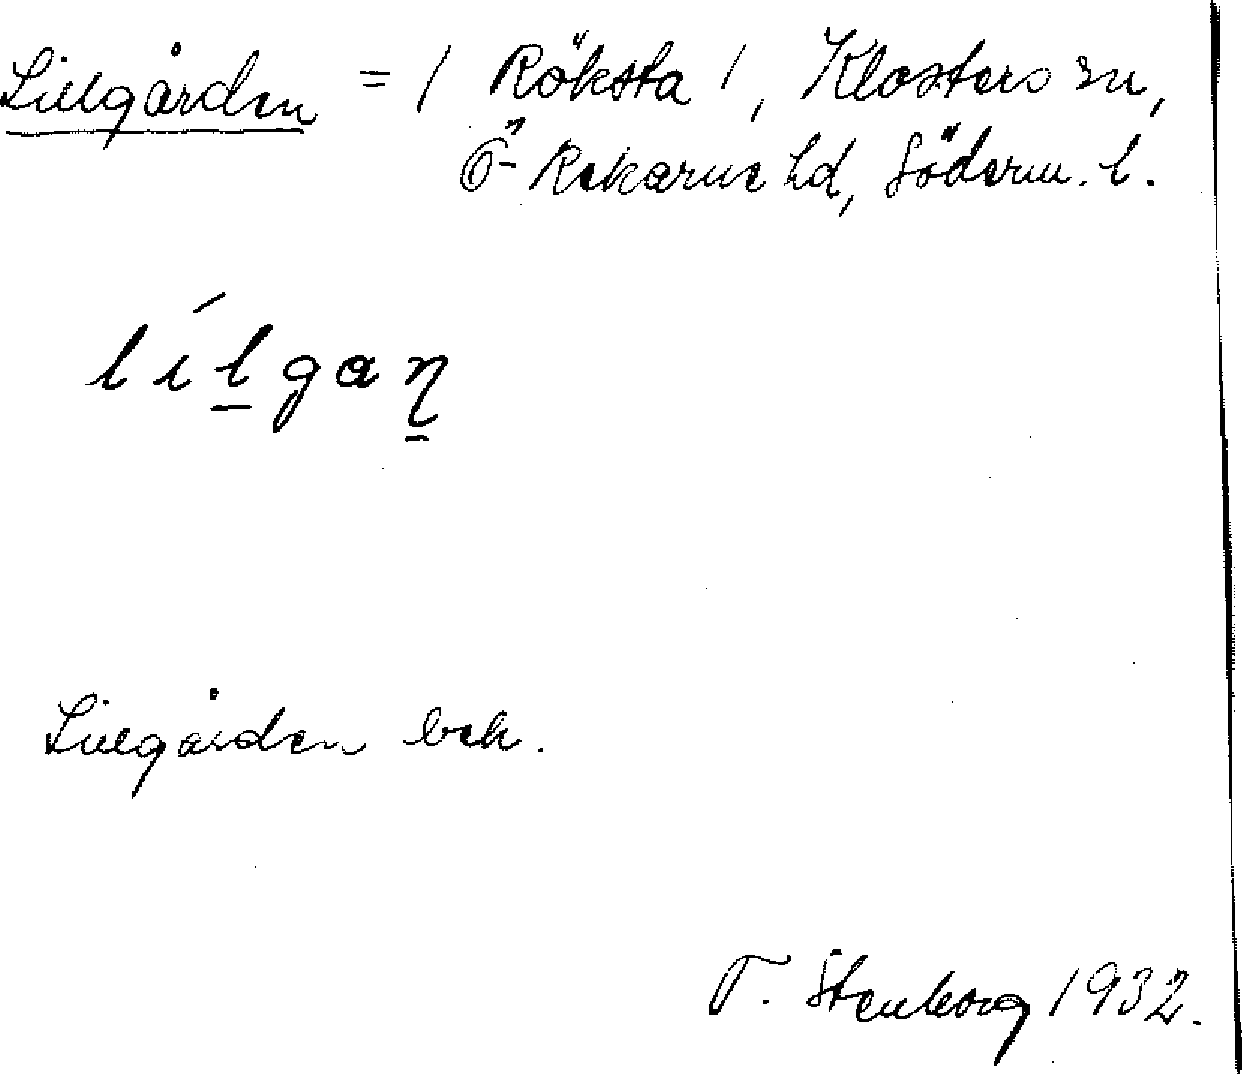 Lillgården = / Röksta /, Klosters sn,
Ö-Rekarne hd, Söderm. l.
lílgaꞃ
Lillgården bek.
T. Stenborg 1932.